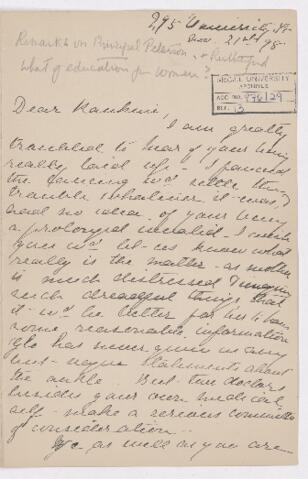 295 University St
Nov. 21st 98
Remarks on Principal Peterson, & Rutherford
What of education for women?
McGILL UNIVERSITY
ARCHIVES
ACC. NO. 776/29
REF. 13
I am greatly
troubled to hear of your being
really laid up. I fancied
the dancing wd settle the
trouble whatever it was,
had no idea of your being
a prolonged invalid. I wish
you wd let us know what
really is the matter, as mother
is much distressed & imagines
such dreadful things that
it wd be better for her to have
some reasonable information
has never given us any
but vague statements about
the ankle. But two doctors
besides your own medical
self, make a serious committee
of consideration.
as well as you are